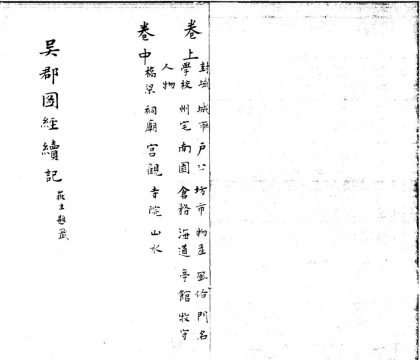 卷上
封域 城邑 戶口 坊市 物產 風俗 門名
學校 州宅 南園 倉務 海道 亭館 牧守
人物
卷中
橋梁 祠廟 宮觀 寺院 山水
吳郡圖經續記